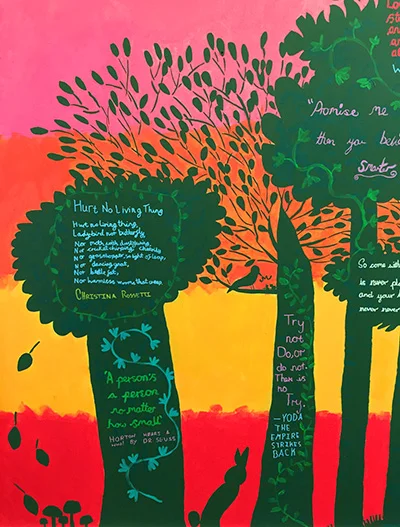 Hurt No Living Thing
Hurt no living thing,
Ladybird nor butterfly,
Nor moth with dusty wing,
Nor cricket chirping cheerily
Nor grasshopper, so light of leap,
Nor dancing gnat,
Nor beetle fat,
Nor harmless worms that creep.
CHRISTINA ROSSETTI
'A person's
a person
no matter
how small'
HORTON HEARS A
WHO! BY DR SEUSS
Try
not
Do, or
do not.
There is
no
Try.
—YODA
THE
EMPIRE
STRIKES
BACK
"Promise me
than you
So come
is never
and your
never never